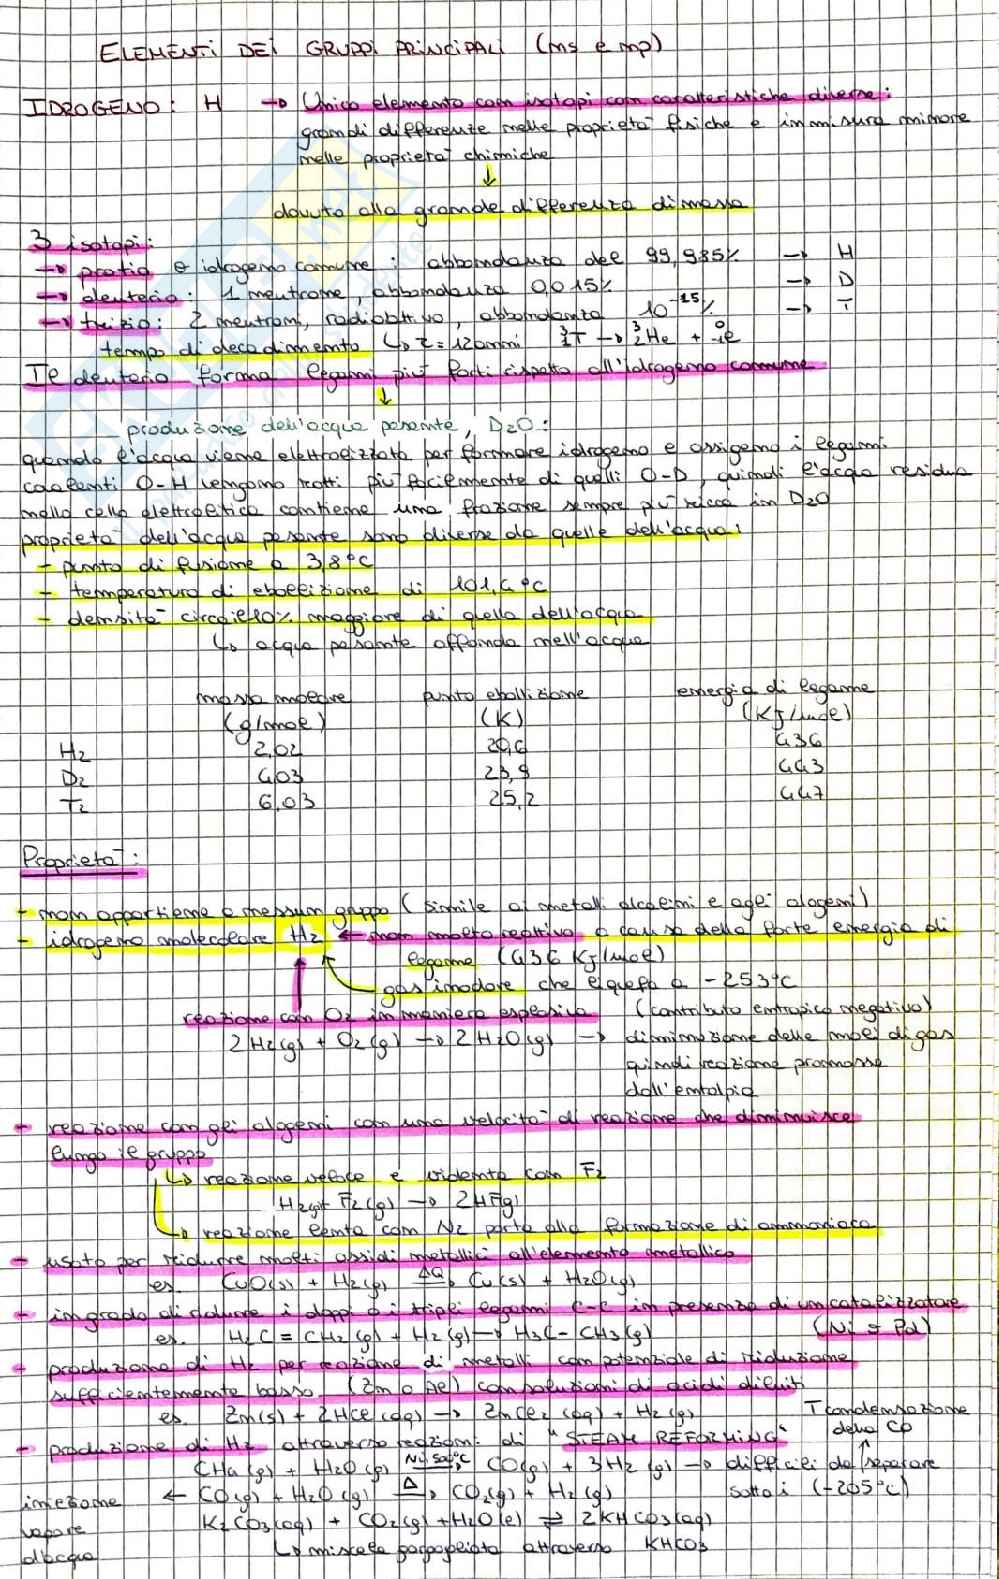 ELEMENTI DEI GRUPPI PRINCIPALI (ns e np)
IDROGENO: H → Unico elemento con isotopi con caratteristiche diverse:
grandi differenze nelle proprietà fisiche e in misura minore
nelle proprietà chimiche
↓
dovuto alla grande differenza di massa
3 isotopi:
→ protio o idrogeno comune: abbondanza del 99,985% → H
→ deuterio: 1 neutrone, abbondanza 0,015% → D
→ trizio: 2 neutroni, radioattivo, abbondanza 10⁻¹⁵% → T
tempo di decadimento ↳ τ = 12 anni ³₁T → ³₂He + ⁰₋₁e
Il deuterio forma legami più forti rispetto all'idrogeno comune
↓
produzione dell'acqua pesante, D₂O:
quando l'acqua viene elettrolizzata per formare idrogeno e ossigeno i legami
covalenti O-H vengono rotti più facilmente di quelli O-D, quindi l'acqua residua
nella cella elettrolitica contiene una frazione sempre più ricca in D₂O
proprietà dell'acqua pesante sono diverse da quelle dell'acqua:
- punto di fusione a 3,8°C
- temperatura di ebollizione di 101,4°C
- densità circa il 10% maggiore di quella dell'acqua
↳ acqua pesante affonda nell'acqua
massa molare punto ebollizione energia di legame
(g/mol) (K) (KJ/mol)
H₂ 2,02 20,6 436
D₂ 4,03 23,9 443
T₂ 6,03 25,2 447
Proprietà:
- non appartiene a nessun gruppo (simile ai metalli alcalini e agli alogeni)
- idrogeno molecolare H₂ ← non molto reattivo a causa della forte energia di
legame (436 KJ/mol)
gas inodore che liquefa a -253°C
reazione con O₂ in maniera esplosiva (contributo entropico negativo)
2H₂(g) + O₂(g) → 2H₂O(g) → diminuzione delle moli di gas
quindi reazione promossa
dall'entalpia
- reazione con gli alogeni con una velocità di reazione che diminuisce
lungo il gruppo
↳ reazione veloce e violenta con F₂
H₂(g) + F₂(g) → 2HF(g)
↳ reazione lenta con N₂ porta alla formazione di ammoniaca
- usato per ridurre molti ossidi metallici all'elemento metallico
es. CuO(s) + H₂(g) ΔQ→ Cu(s) + H₂O(g)
- in grado di ridurre i doppi o i tripli legami C-C in presenza di un catalizzatore
es. H₂C = CH₂(g) + H₂(g) → H₃C - CH₃(g) (Ni o Pd)
- produzione di H₂ per reazione di metalli con potenziale di riduzione
sufficientemente basso (Zn o Al) con soluzioni di acidi diluiti
es. Zn(s) + 2HCl(aq) → ZnCl₂(aq) + H₂(g) T condensazione
della CO
- produzione di H₂ attraverso reazioni di "STEAM REFORMING" ↑
CH₄(g) + H₂O(g) Ni, 500°C→ CO(g) + 3H₂(g) → difficili da separare
iniezione ← CO(g) + H₂O(g) Δ→ CO₂(g) + H₂(g) sotto i (-205°C)
vapore K₂CO₃(aq) + CO₂(g) + H₂O(l) ⇌ 2KHCO₃(aq)
d'acqua ↳ miscela attraverso KHCO₃